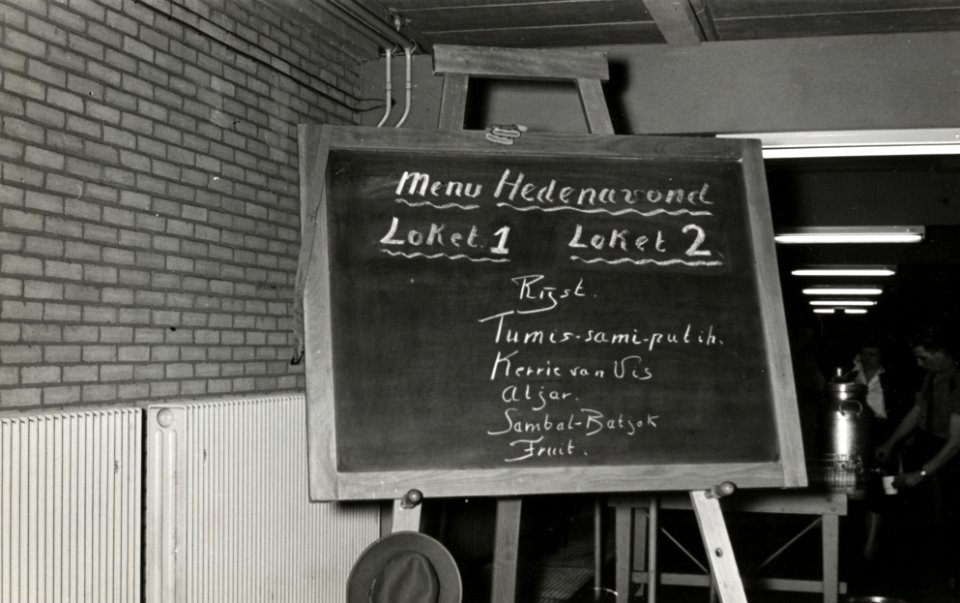 Menu Hedenavond
Loket 1 Loket 2
Rijst.
Tumis-sami-putih.
Kerrie van Vis
Atjar.
Sambal-Batjok
Fruit.